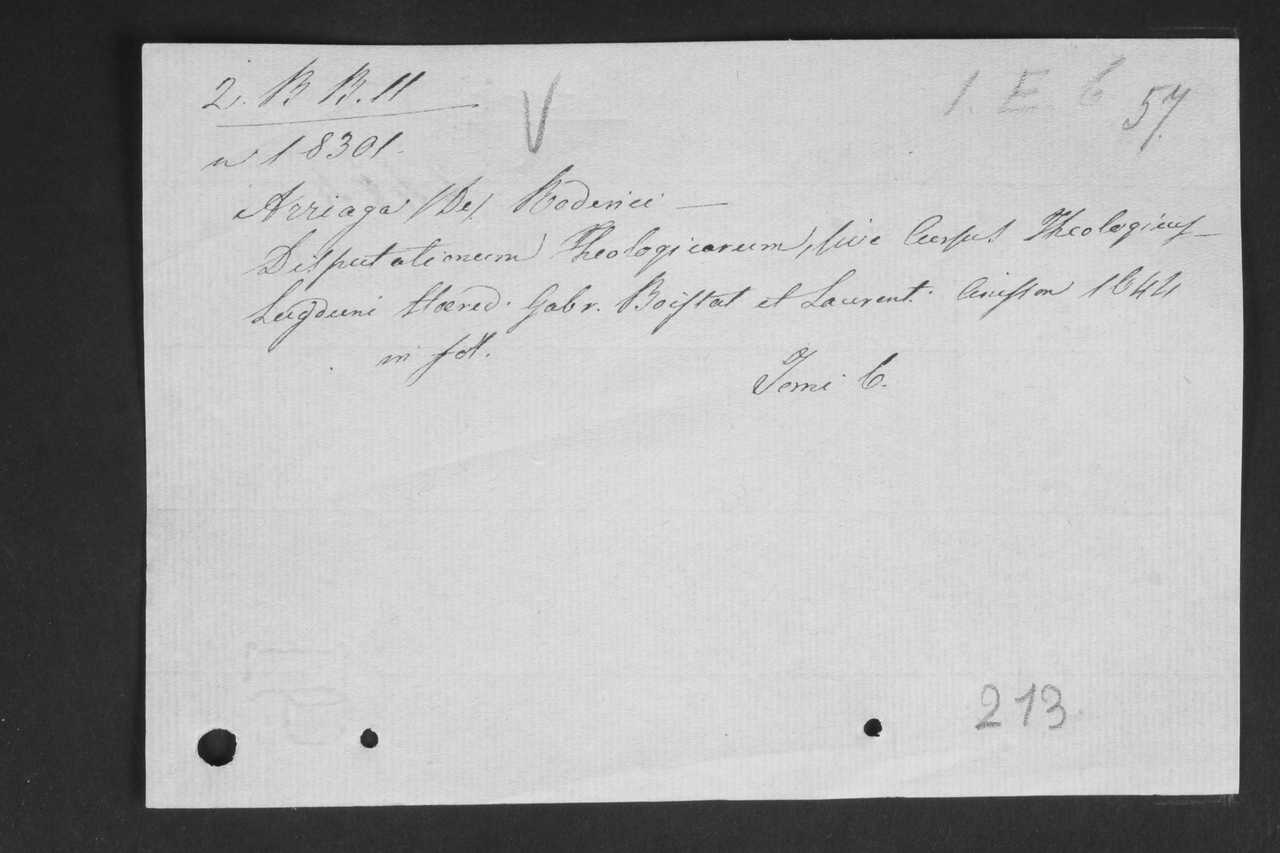 2. B B. 11
V
1. E 6 57
n 18301.
Arriaga (De) Roderici —
Disputationum Theologicarum, sive Cursus Theologicus —
Lugduni Hæred. Gabr. Boissat et Laurent. Anisson 1644
in fol.
Tomi 6.
213